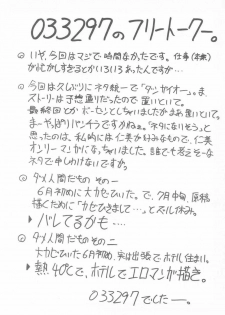 033297のフリートークー。
◎ いや、今回はマジで時間なかったです。仕事(本業)
がむかしすぎるとかいろいろあったんですが…
◎ 今回は久しぶりにネタ統一で「ダンガイオー」。ま
ストーリは予想通りだったので置いといて。
最終回とかポーゼンとしちゃいましたがまあ置いといて。
まーや、ぱりパンチラですかねぇ。「ネタになりそう」と
思ったのは、私的にはこの美が好みなので、仁美
オンリーマンガになっちゃいました。誰でも考えそーな
ネタで申しわけないですが。
◎ ダメ人間だもの その一
6月初めに大カゼひいた。で、7月中旬、原稿
描くために「カゼひきまして…」とズル休み。
▶ バレてるかも‥‥
◎ ダメ人間だもの その二
大カゼひいた6月初め、実は出張でホテル住まい。
▶ 熱40℃で、ホテルでエロマンガ描き。
033297でしたー。